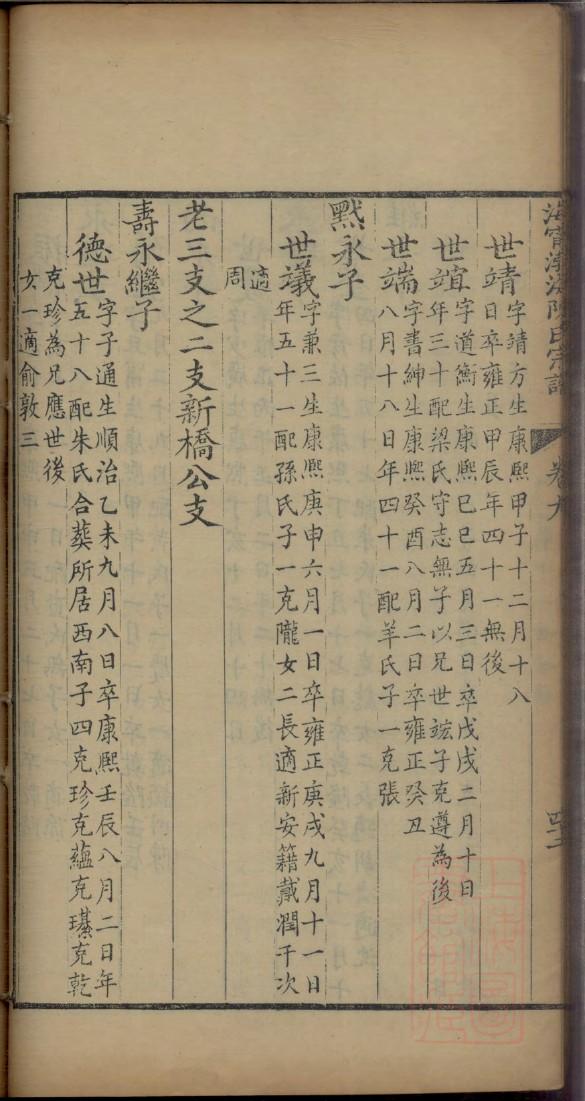 海寧渤海陳氏宗譜
卷九
世靖字靖方生康熙甲子十二月十八
日卒雍正甲辰年四十一無後
世誼字道衡生康熙己巳五月三日卒戊戌二月十日
年三十配梁氏守志無子以兄世竑子克遵為後
世端字書紳生康熙癸酉八月二日卒雍正癸丑
八月十八日年四十一配羊氏子一克張
黙永子
世議字兼三生康熙庚申六月一日卒雍正庚戌九月十一日
年五十一配孫氏子一克隴女二長適新安籍戴潤千次
適周
老三支之二支新橋公支
壽永繼子
德世字子通生順治乙未九月八日卒康熙壬辰八月二日年
五十八配朱氏合葬所居西南子四克珍克蘊克瓚克乾
克珍為兄應世後
女一適俞敦三